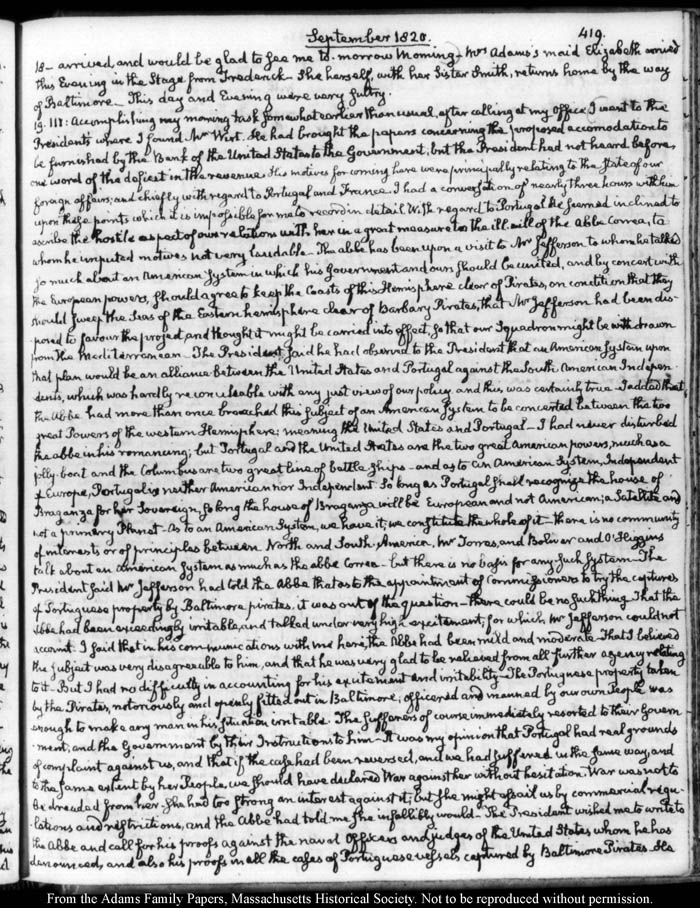 September 1820.
419.
18 - arrived, and would be glad to see me to-morrow Morning - Mrs Adams's maid Elizabeth arrived
this Evening in the Stage from Frederick - She herself, with her Sister Smith, returns home by the way
of Baltimore - This day and Evening were very sultry.
19. III: Accomplishing my morning task somewhat earlier than usual, after calling at my Office I went to the
Presidents where I found Mr Wirt. He had brought the papers concerning the proposed accommodation to
be furnished by the Bank of the United States to the Government, but the President had not heard before,
one word of the deficit in the revenue. His motives for coming here were principally relating to the State of our
foreign affairs, and chiefly with regard to Portugal and France. I had a conversation of nearly three hours with him
upon these points which it is impossible for me to record in detail. With regard to Portugal he seemed inclined to
ascribe the hostile aspect of our relations with her in a great measure to the ill-will of the Abbe Correa, to
whom he imputed motives not very laudable. The abbe has been upon a visit to Mr Jefferson to whom he talked
so much about an American System in which his Government and ours should be united, and by concert with
the European powers, should agree to keep the Coasts of this Hemisphere clear of Pirates, on condition that they
should sweep the Seas of the Eastern hemisphere clear of Barbary Pirates, that Mr Jefferson had been dis-
posed to favour the project, and thought it might be carried into effect, so that our Squadron might be withdrawn
from the Mediterranean - The President said he had observed to the President that an American System upon
that plan would be an alliance between the United States and Portugal against the South American Indepen-
dents, which was hardly reconcileable with any just view of our policy, and this was certainly true. I added that
the Abbe had more than once broached this subject of an American System to be concerted between the two
great Powers of the western Hemisphere; meaning the United States and Portugal - I had never disturbed
the abbe in his romancing; but Portugal and the United States are the two great American powers, much as a
jolly-boat and the Columbus are two great line of battle Ships - and as to an American System, Independent
of Europe, Portugal is neither American nor Independent. So long as Portugal shall recognize the house of
Braganza for her Sovereign, so long the house of Braganza will be European and not American; a Satellite and
not a primary Planet - As to an American System, we have it; we constitute the whole of it - there is no community
of interests or of principles between North and South America. Mr Torres, and Bolivar and O'Higgins
talk about an American System as much as the abbe Correa - but there is no basis for any such System - The
President said Mr Jefferson had told the Abbe that as to the appointment of Commissioners to try the captures
of Portuguese property by Baltimore pirates, it was out of the question - there could be no such thing. That the
Abbe had been exceedingly irritable, and talked under very high excitement, for which Mr Jefferson could not
account. I said that in his communications with me here, the Abbe had been mild and moderate - that I believed
the subject was very disagreeable to him, and that he was very glad to be relieved from all further agency relating
to it - But I had no difficulty in accounting for his excitement and irritability - The Portuguese property taken
by the Pirates, notoriously and openly fitted out in Baltimore, officered and manned by our own People was
enough to make any man in his situation irritable. The sufferers of course immediately resorted to their Govern-
ment, and the Government by their Instructions to him - It was my opinion that Portugal had real grounds
of complaint against us, and that if the case had been reversed, and we had suffered in the same way, and
to the same extent by her People, we should have declared War against her without hesitation. War was not to
be dreaded from her - She had too strong an interest against it; but she might assail us by commercial regu-
lations and restrictions, and the Abbe had told me she infallibly would - The President wished me to write to
the Abbe and call for his proofs against the naval Officers and judges of the United States whom he has
denounced, and also his proofs in all the cases of Portuguese vessels captured by Baltimore Pirates - He
From the Adams Family Papers, Massachusetts Historical Society. Not to be reproduced without permission.